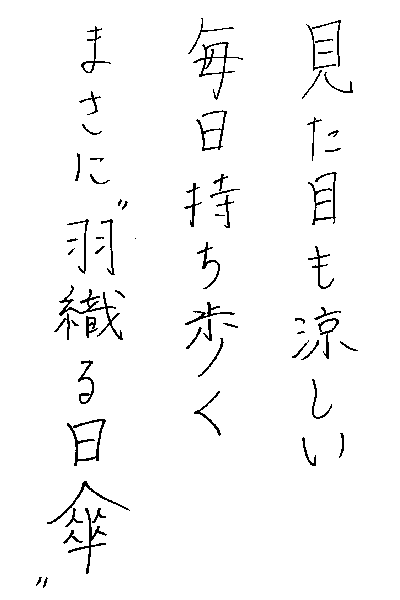 見た目も涼しい
毎日持ち歩く
まさに"羽織る日傘"